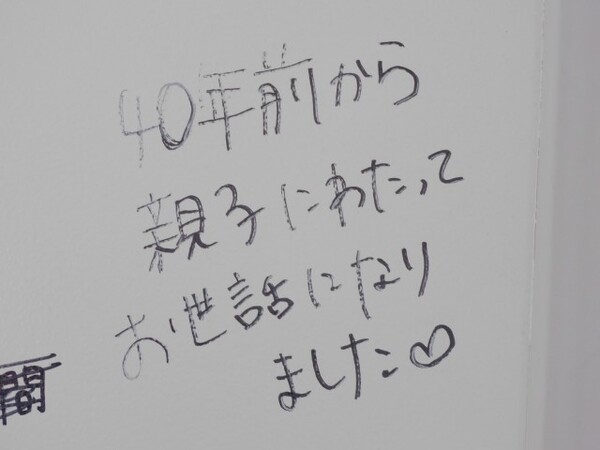 40年前から
親子にわたって
お世話になり
ました♡
間